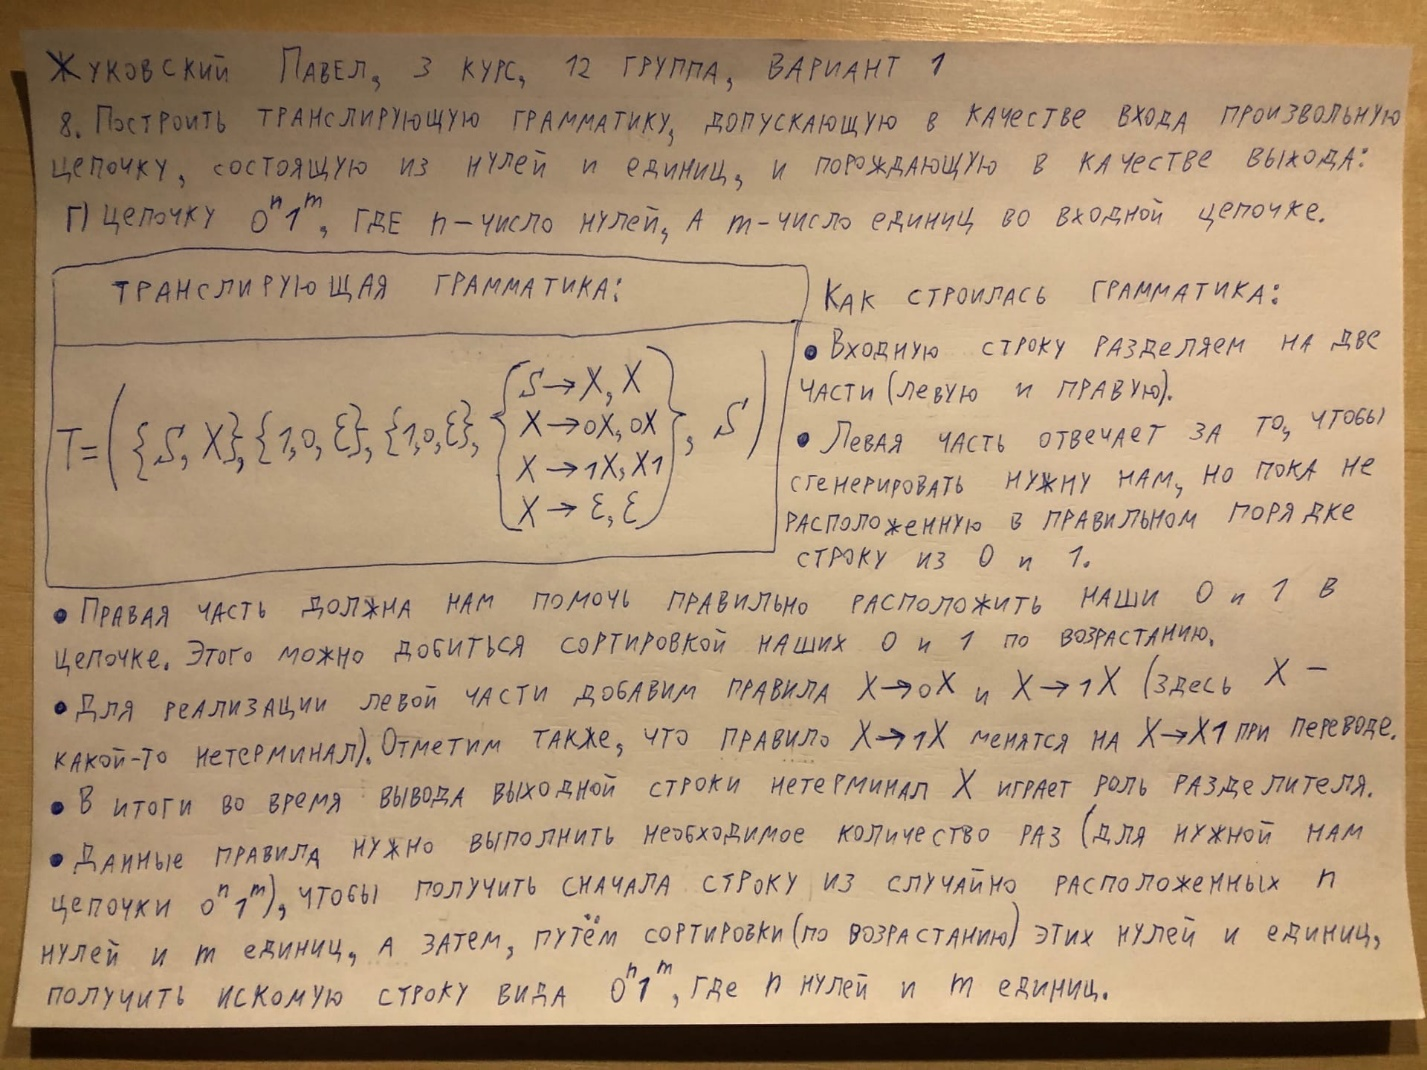 Жуковский Павел, 3 курс, 12 группа, вариант 1
8. Построить транслирующую грамматику, допускающую в качестве входа произвольную
цепочку, состоящую из нулей и единиц, и порождающую в качестве выхода:
г) цепочку 0ⁿ1ᵐ, где n – число нулей, а m – число единиц во входной цепочке.
Транслирующая грамматика:
T = ( {S, X}, {1, 0, ε}, {1, 0, ε}, { S → X, X
X → 0X, 0X
X → 1X, X1
X → ε, ε }, S )
Как строилась грамматика:
• Входную строку разделяем на две
части (левую и правую).
• Левая часть отвечает за то, чтобы
сгенерировать нужну нам, но пока не
расположенную в правильном порядке
строку из 0 и 1.
• Правая часть должна нам помочь правильно расположить наши 0 и 1 в
цепочке. Этого можно добиться сортировкой наших 0 и 1 по возрастанию.
• Для реализации левой части добавим правила X → 0X и X → 1X (здесь X –
какой-то нетерминал). Отметим также, что правило X → 1X менятся на X → X1 при переводе.
• В итоги во время вывода выходной строки нетерминал X играет роль разделителя.
• Данные правила нужно выполнить необходимое количество раз (для нужной нам
цепочки 0ⁿ1ᵐ), чтобы получить сначала строку из случайно расположенных n
нулей и m единиц, а затем, путём сортировки (по возрастанию) этих нулей и единиц,
получить искомую строку вида 0ⁿ1ᵐ, где n нулей и m единиц.